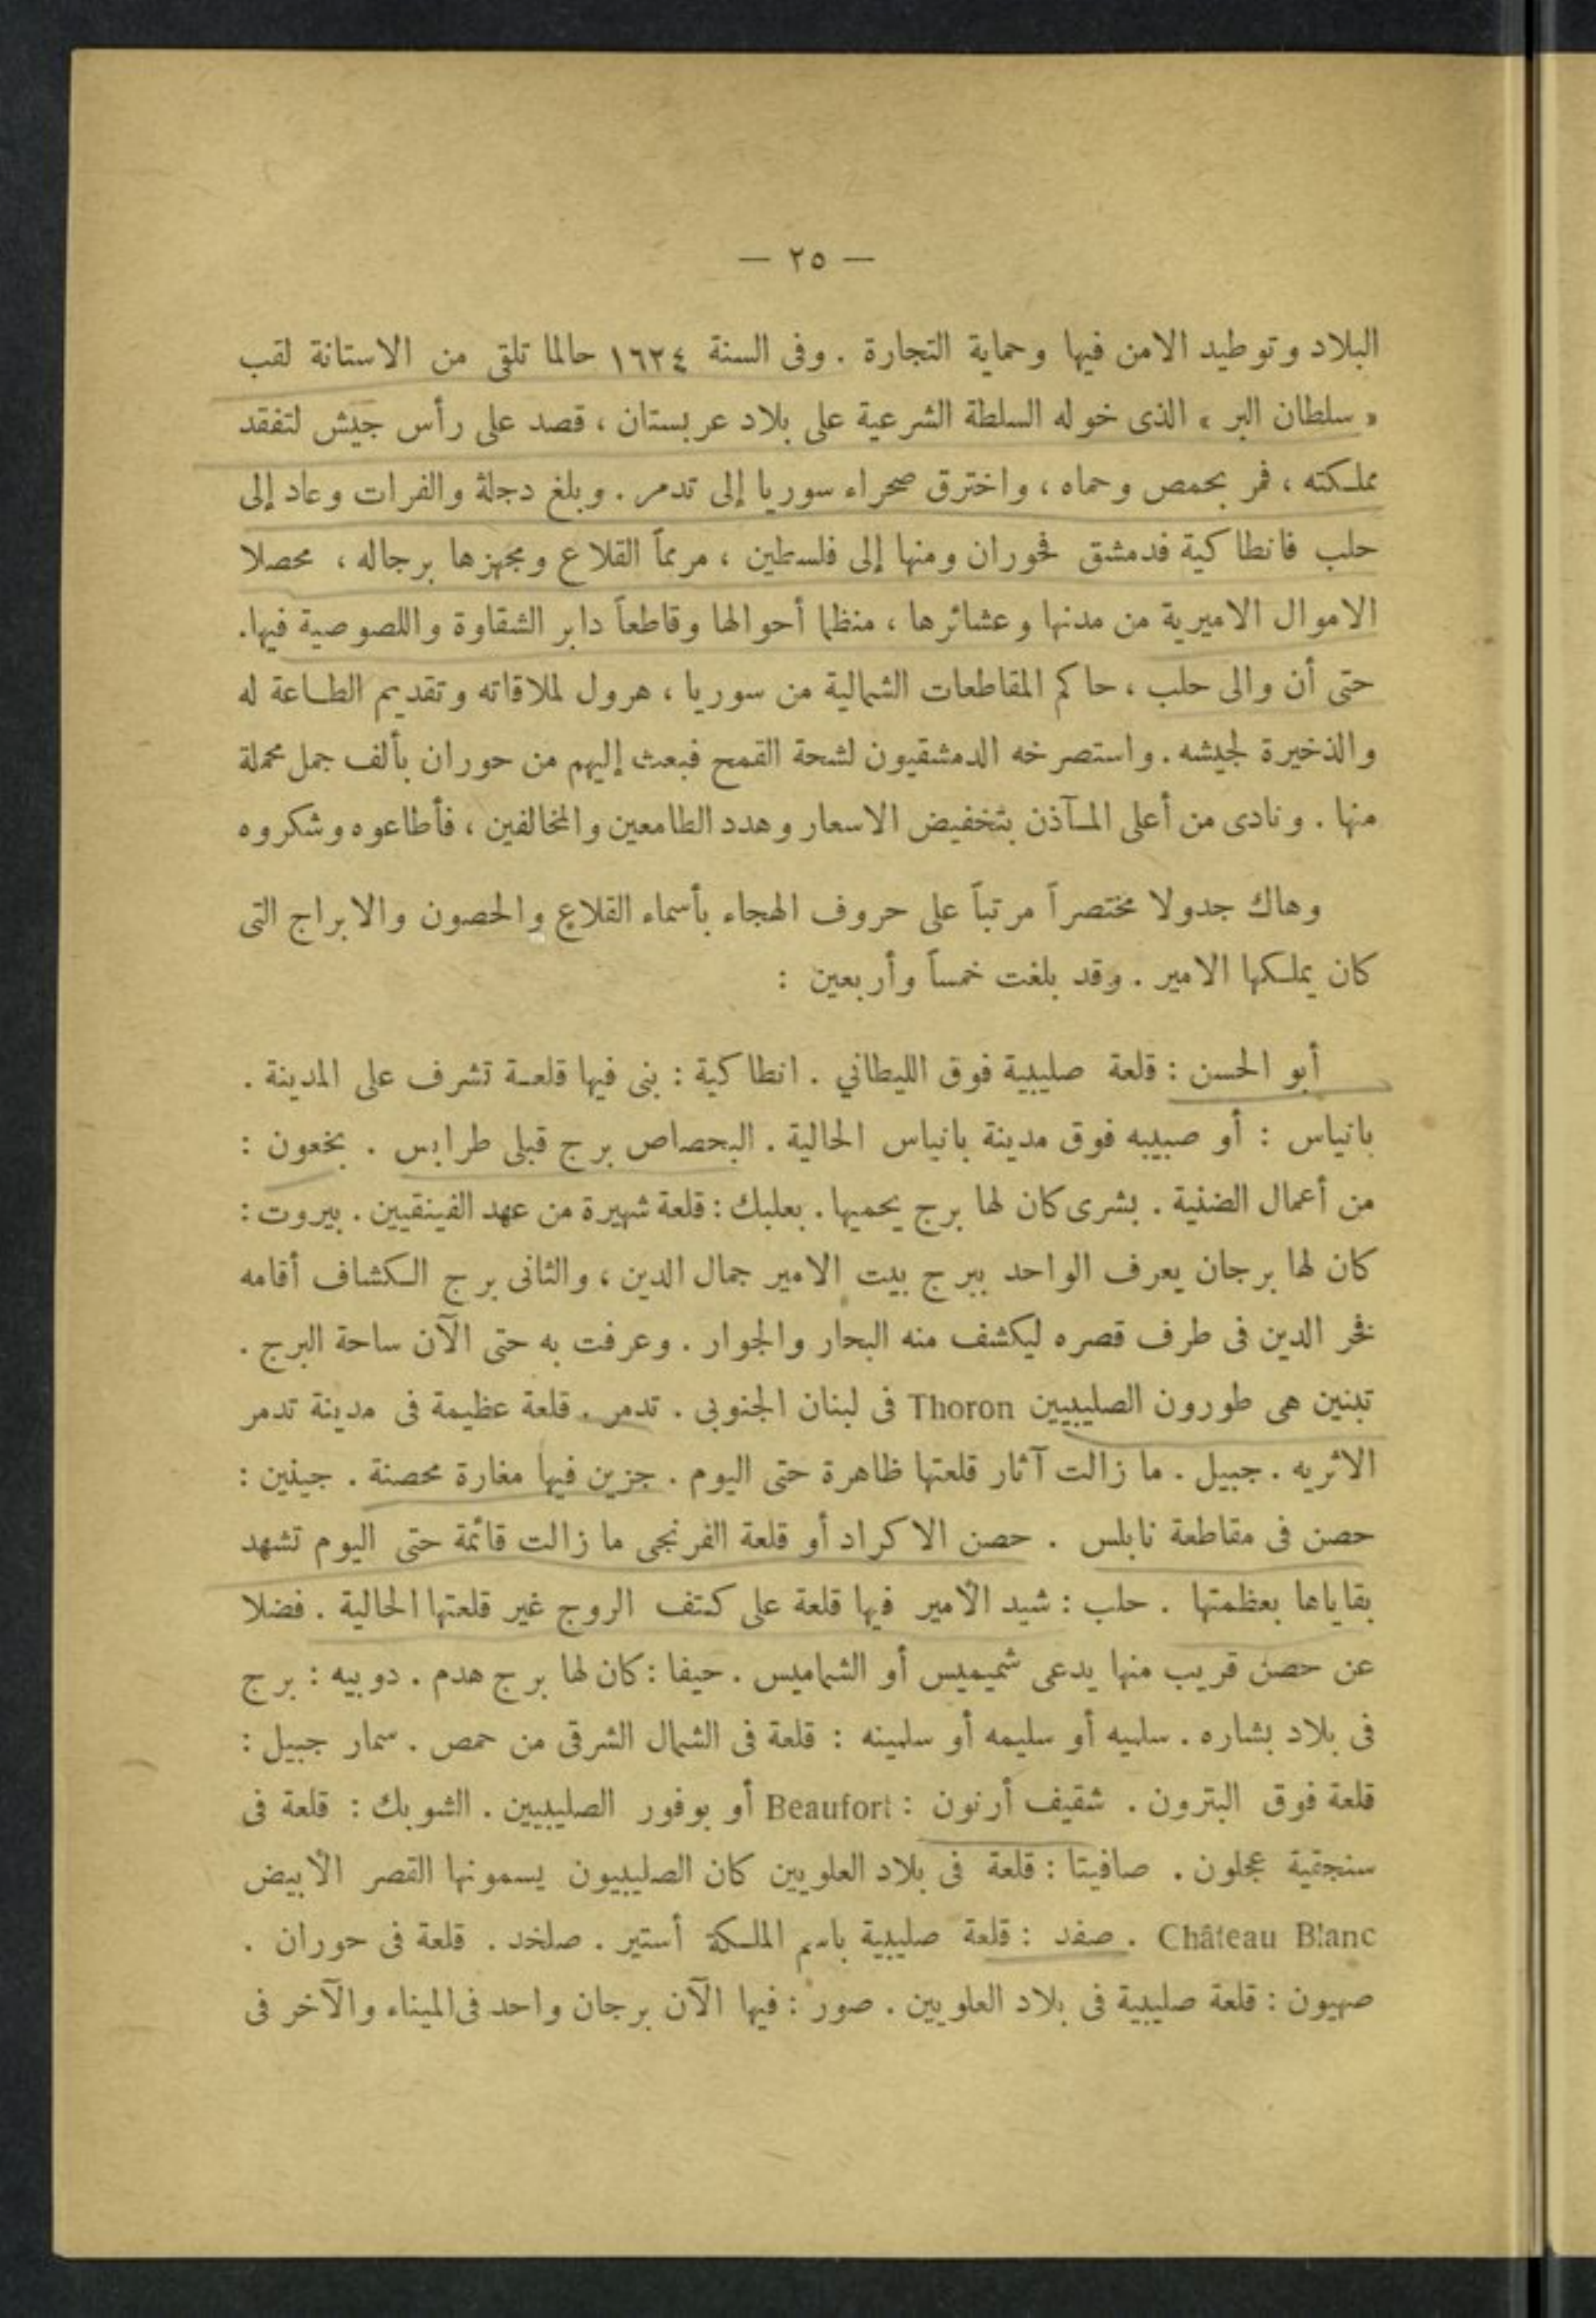 — ٢٥ —
البلاد وتوطيد الامن فيها وحماية التجارة . وفى السنة ١٦٢٤ حالما تلقى من الاستانة لقب
« سلطان البر » الذى خوله السلطة الشرعية على بلاد عربستان ، قصد على رأس جيش لتفقد
مملكته ، فمر بحمص وحماه ، واخترق صحراء سوريا إلى تدمر . وبلغ دجلة والفرات وعاد إلى
حلب فانطاكية فدمشق فحوران ومنها إلى فلسطين ، مرمماً القلاع ومجهزها برجاله ، محصلا
الاموال الاميرية من مدنها وعشائرها ، منظما أحوالها وقاطعاً دابر الشقاوة واللصوصية فيها.
حتى أن والى حلب ، حاكم المقاطعات الشمالية من سوريا ، هرول لملاقاته وتقديم الطاعة له
والذخيرة لجيشه . واستصرخه الدمشقيون لشحة القمح فبعث إليهم من حوران بألف جمل محملة
منها . ونادى من أعلى المآذن بتخفيض الاسعار وهدد الطامعين والمخالفين ، فأطاعوه وشكروه
وهاك جدولا مختصراً مرتباً على حروف الهجاء بأسماء القلاع والحصون والابراج التى
كان يملكها الامير . وقد بلغت خمساً وأربعين :
أبو الحسن : قلعة صليبية فوق الليطاني . انطاكية : بنى فيها قلعة تشرف على المدينة .
بانياس : أو صبيبه فوق مدينة بانياس الحالية . البحصاص برج قبلى طرابس . بخعون :
من أعمال الضنية . بشرى كان لها برج يحميها . بعلبك : قلعة شهيرة من عهد الفينقيين . بيروت :
كان لها برجان يعرف الواحد ببرج بيت الامير جمال الدين ، والثانى برج الكشاف أقامه
فخر الدين فى طرف قصره ليكشف منه البحار والجوار . وعرفت به حتى الآن ساحة البرج .
تبنين هى طورون الصليبيين Thoron فى لبنان الجنوبي . تدمر . قلعة عظيمة فى مدينة تدمر
الاثريه . جبيل . ما زالت آثار قلعتها ظاهرة حتى اليوم . جزين فيها مغارة محصنة . جينين :
حصن فى مقاطعة نابلس . حصن الاكراد أو قلعة الفرنجى ما زالت قائمة حتى اليوم تشهد
بقاياها بعظمتها . حلب : شيد الأمير فيها قلعة على كتف الروج غير قلعتها الحالية . فضلا
عن حصن قريب منها يدعى شميميس أو الشماميس . حيفا : كان لها برج هدم . دوبيه : برج
فى بلاد بشاره . سلميه أو سليمه أو سلمينه : قلعة فى الشمال الشرقى من حمص . سمار جبيل :
قلعة فوق البترون . شقيف أرنون : Beaufort أو بوفور الصليبيين . الشوبك : قلعة فى
سنجقية عجلون . صافيتا : قلعة فى بلاد العلويين كان الصليبيون يسمونها القصر الأبيض
Château Blanc . صفد : قلعة صليبية باسم الملكة أستير . صلخد . قلعة فى حوران .
صهيون : قلعة صليبية فى بلاد العلويين . صور : فيها الآن برجان واحد فى الميناء والآخر فى